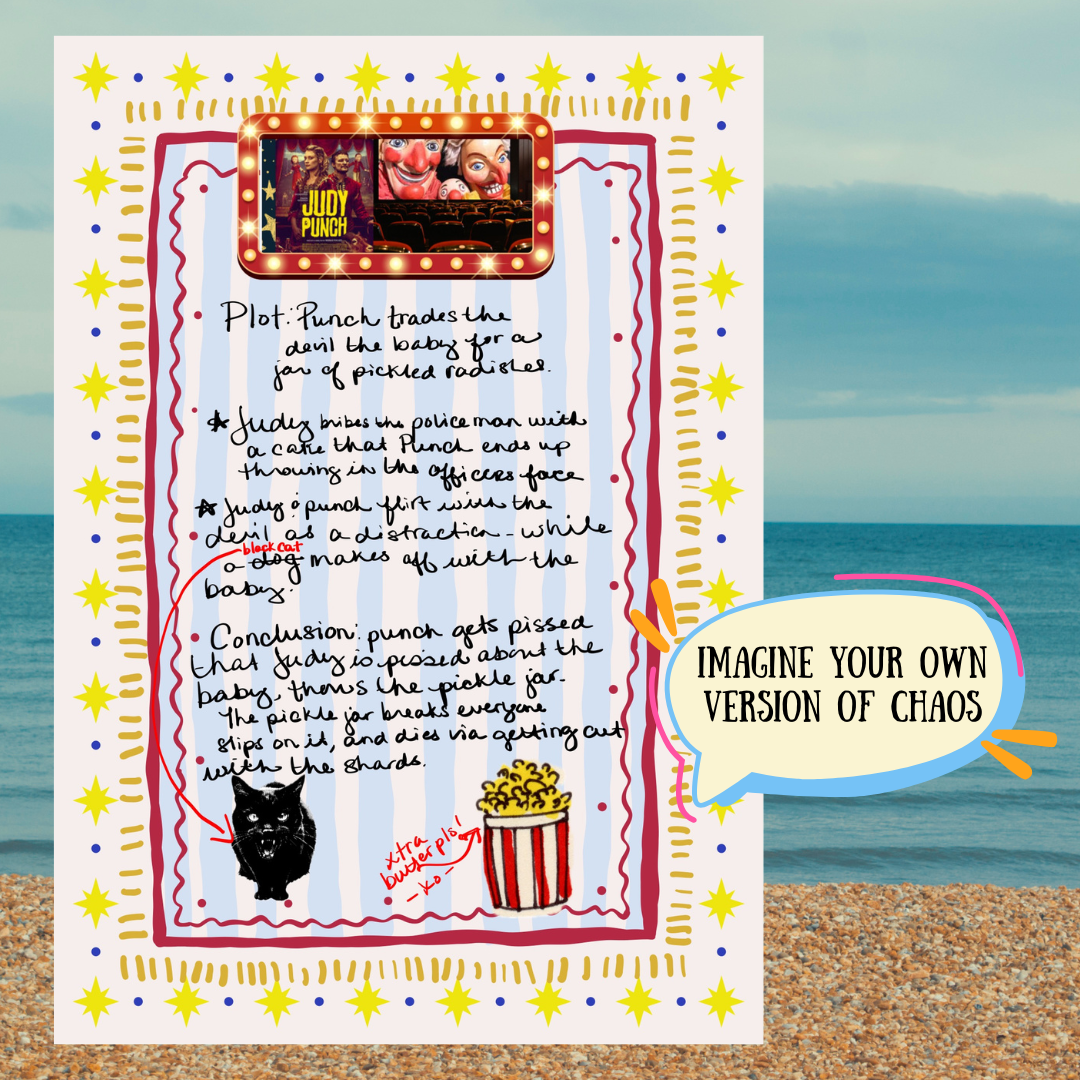 JUDY
PUNCH
Plot: Punch trades the
devil the baby for a
jar of pickled radishes.
★ Judy bribes the policeman with
a cane that Punch ends up
throwing in the officers face
★ Judy & punch flirt with the
devil as a distraction - while
black cat
a dog makes off with the
baby.
Conclusion: punch gets pissed
that Judy is pissed about the
baby, throws the pickle jar.
The pickle jar breaks everyone
slips on it, and dies via getting cut
with the shards.
xtra
butter pls!
- xo -
IMAGINE YOUR OWN
VERSION OF CHAOS